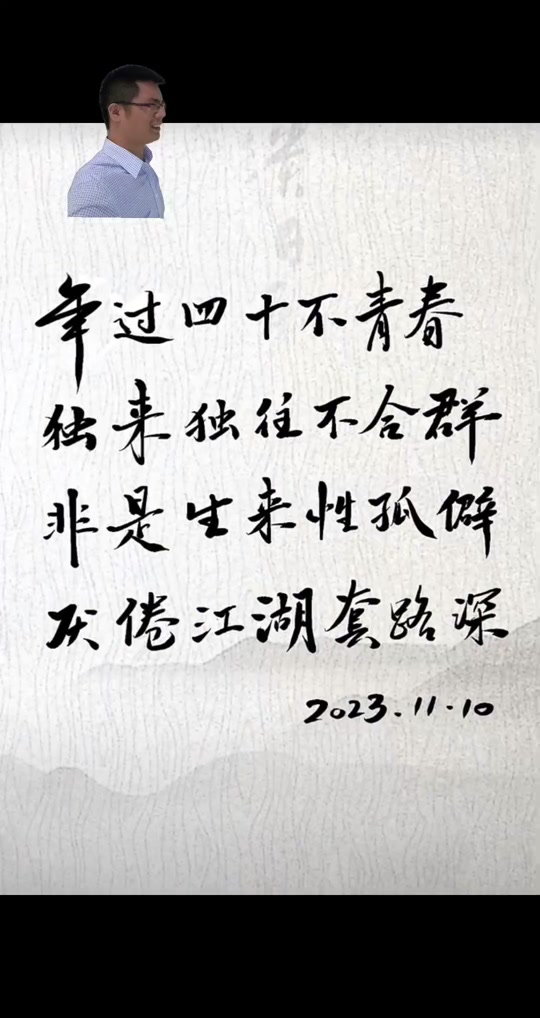 年过四十不青春
独来独往不合群
非是生来性孤僻
厌倦江湖套路深
2023.11.10